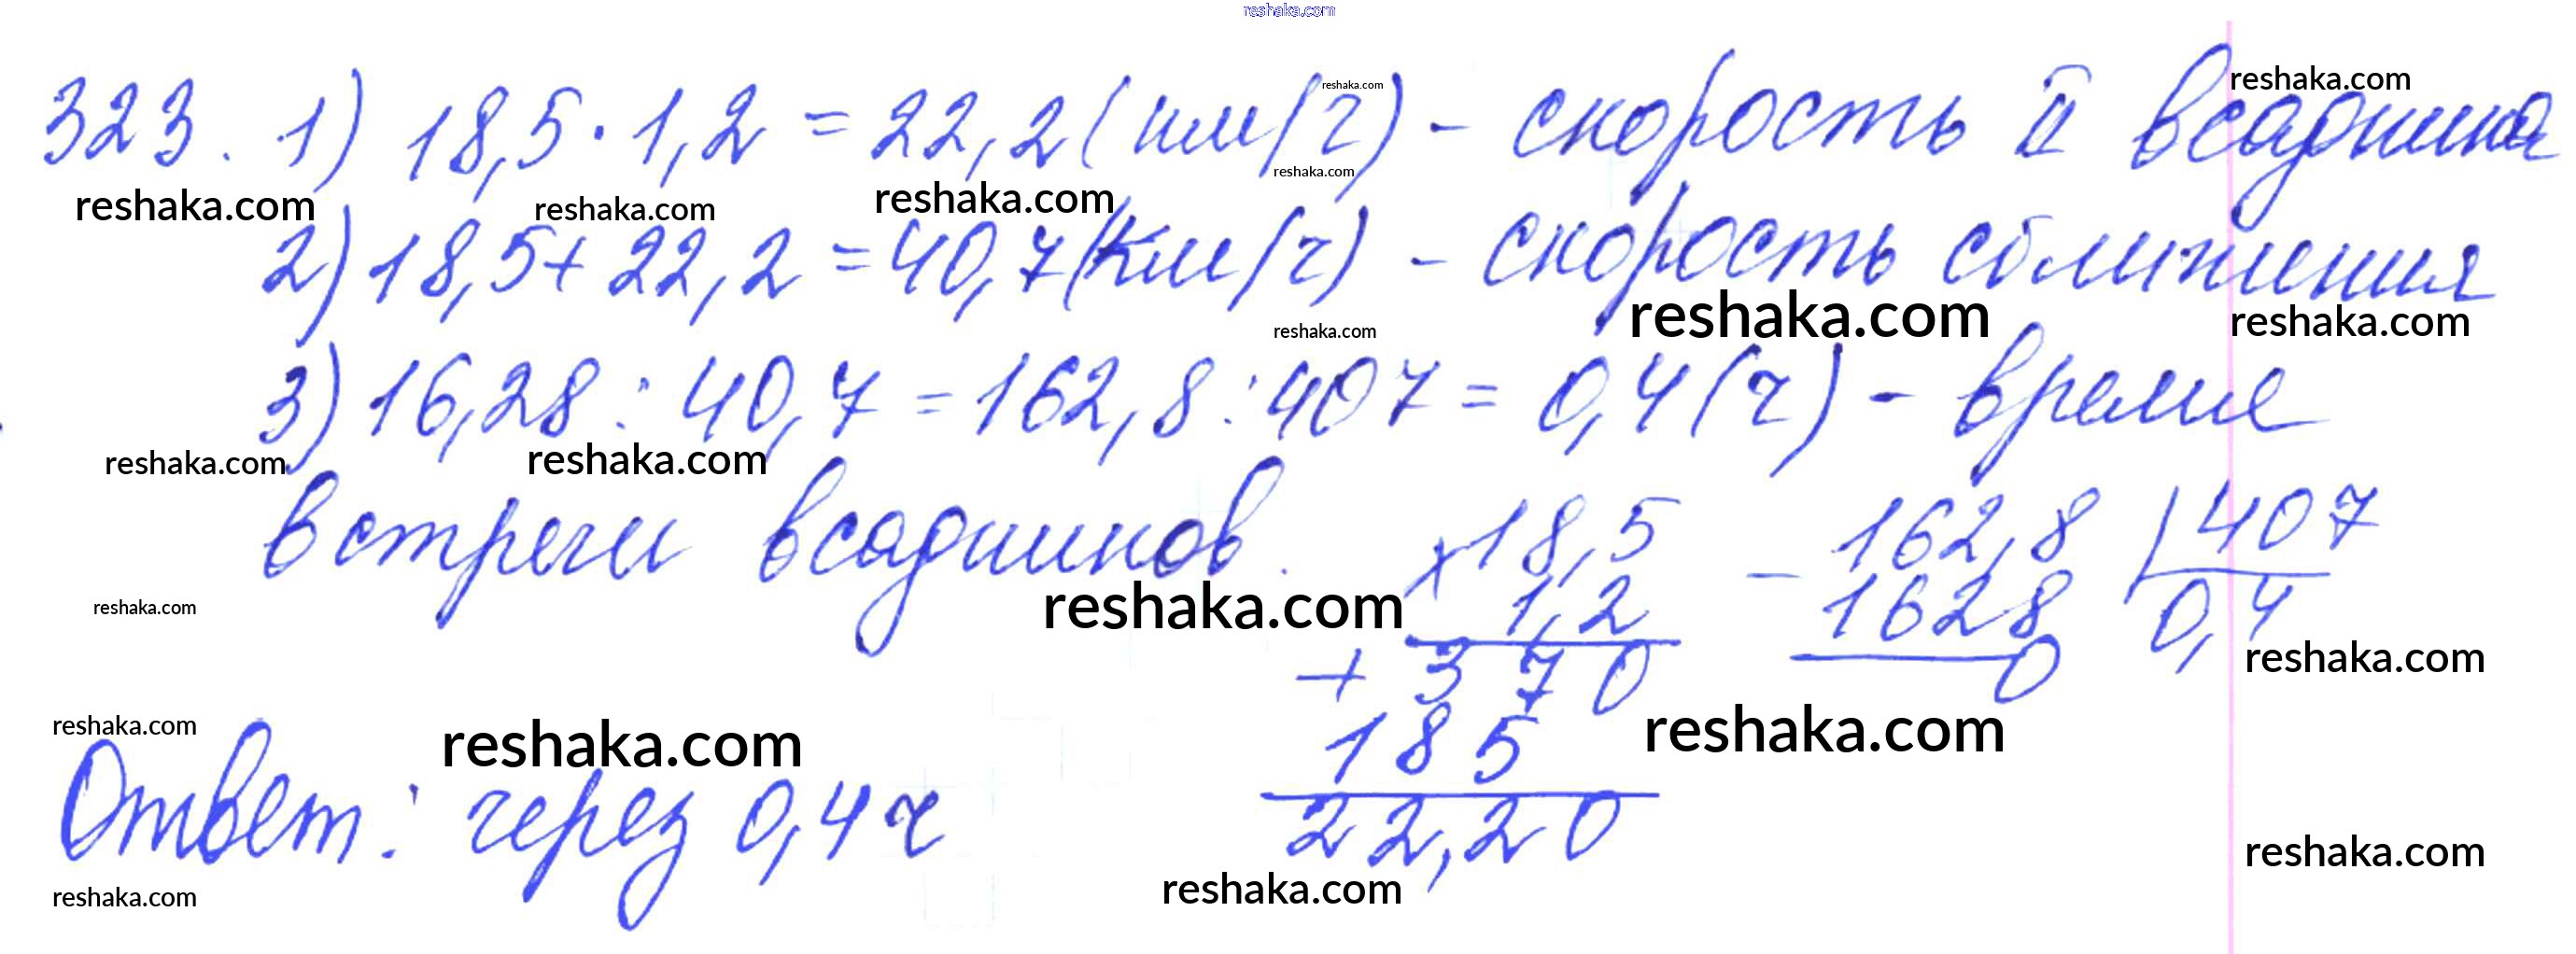 reshaka.com
323. 1) 18,5 · 1,2 = 22,2 (км/ч) - скорость II всадника
reshaka.com reshaka.com
reshaka.com reshaka.com reshaka.com reshaka.com
2) 18,5 + 22,2 = 40,7 (км/ч) - скорость сближения
reshaka.com reshaka.com reshaka.com
3) 16,28 : 40,7 = 162,8 : 407 = 0,4 (ч) - время
reshaka.com reshaka.com
встречи всадников.
× 18,5
1,2
+ 370
185
22,20
- 162,8 | 407
1628 0,4
0
reshaka.com reshaka.com reshaka.com
reshaka.com reshaka.com reshaka.com
Ответ: через 0,4 ч
reshaka.com reshaka.com reshaka.com